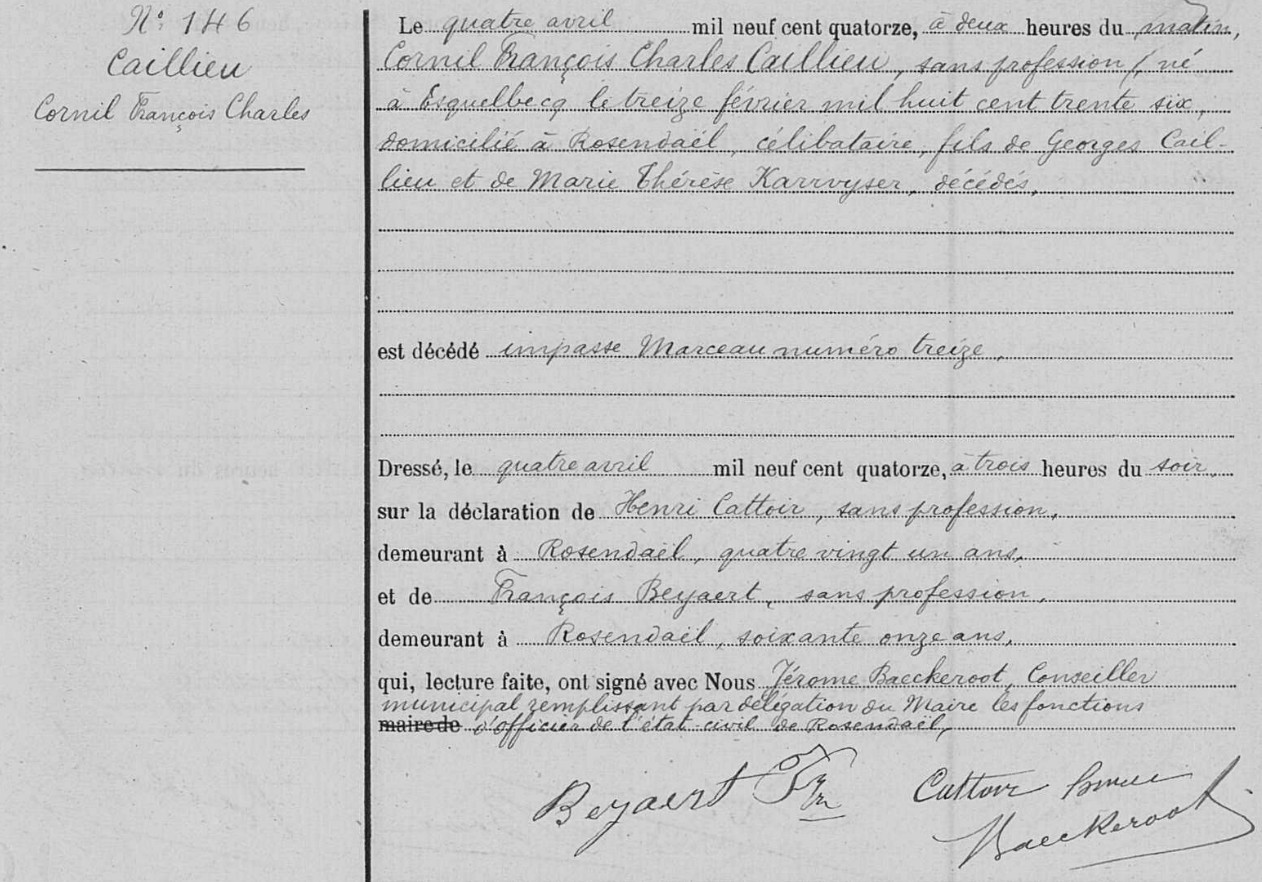 N° 146
Caillieu
Cornil François Charles
Le quatre avril mil neuf cent quatorze, à deux heures du matin,
Cornil François Charles Caillieu, sans profession, né
à Esquelbecq le treize février mil huit cent trente six,
domicilié à Rosendaël, célibataire, fils de Georges Cail-
lieu et de Marie Thérèse Karrvyser, décédés,
est décédé impasse Marceau numéro treize,
Dressé, le quatre avril mil neuf cent quatorze, à trois heures du soir
sur la déclaration de Henri Cattoir, sans profession,
demeurant à Rosendaël, quatre vingt un ans,
et de François Beyaert, sans profession,
demeurant à Rosendaël, soixante onze ans,
qui, lecture faite, ont signé avec Nous Jérome Baeckeroot, Conseiller
municipal remplissant par délégation du Maire les fonctions
maire de d'officier de l'état-civil de Rosendaël,
Beyaert
Cattoir
Baeckeroot